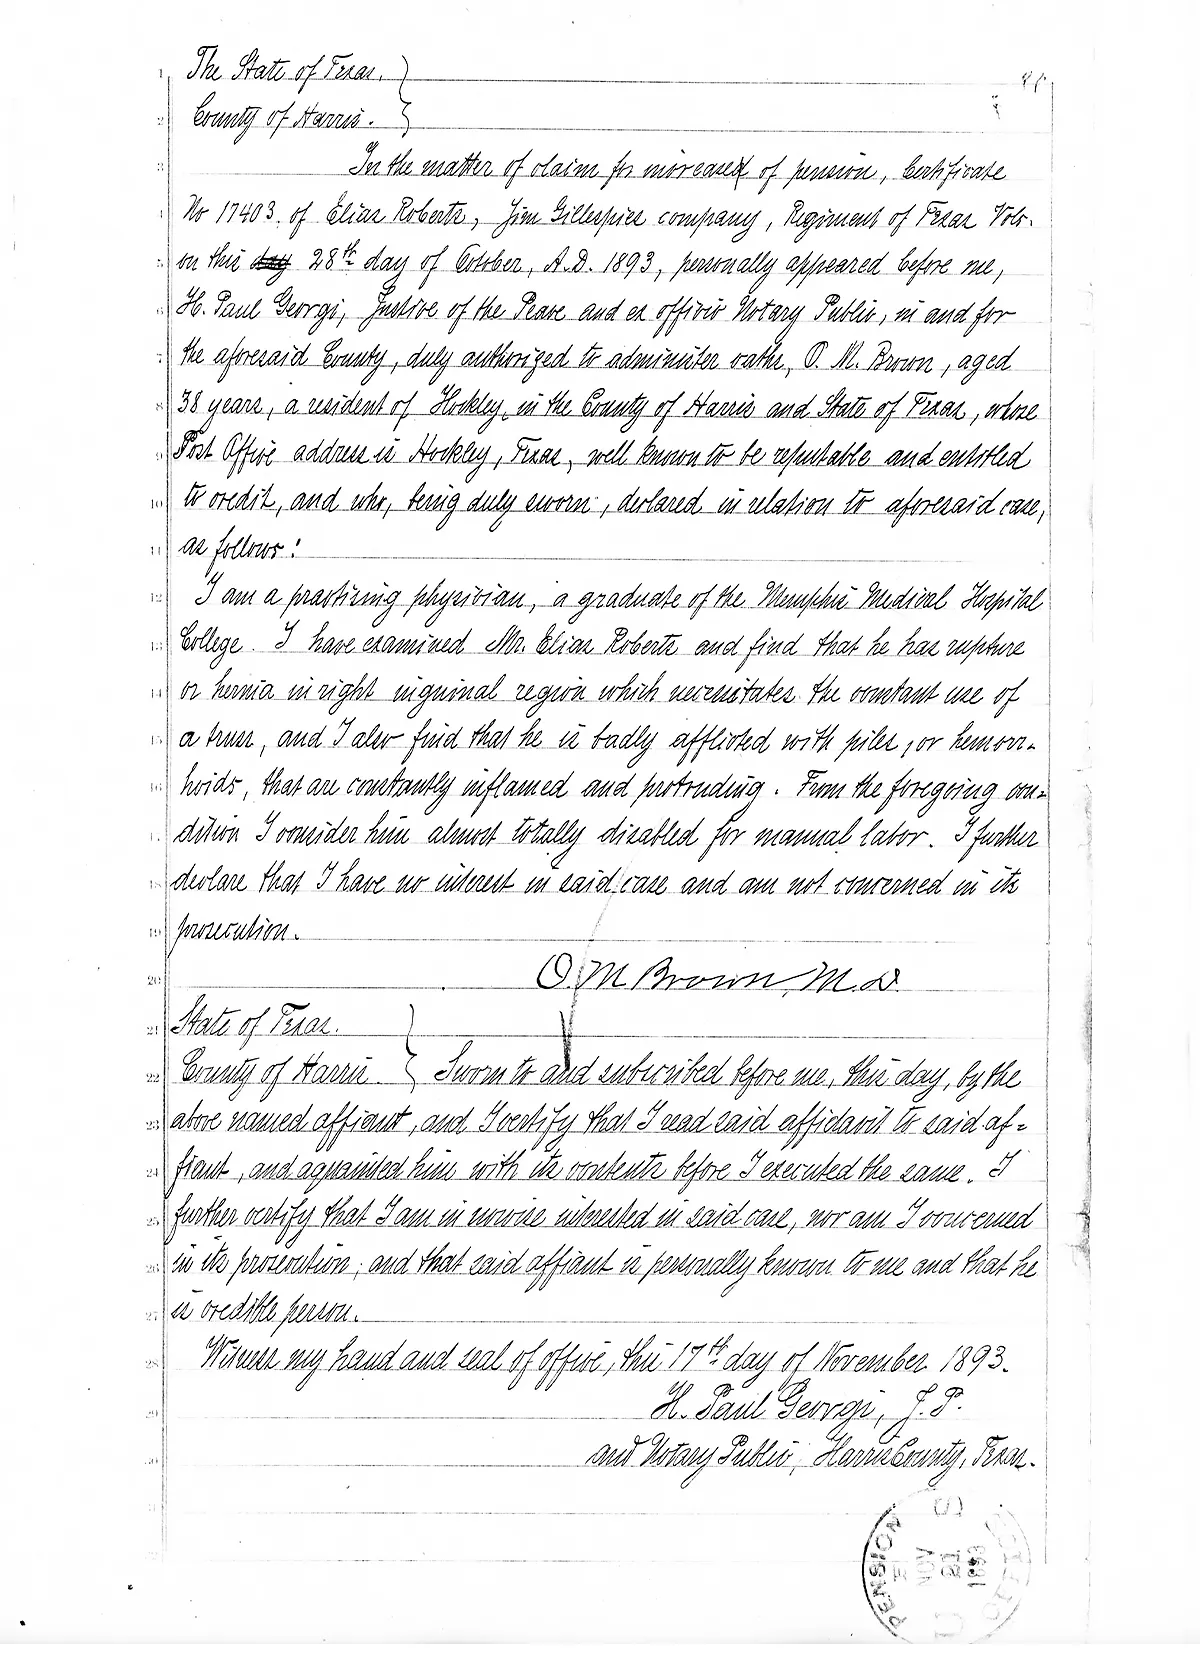 The State of Texas.
County of Harris.
In the matter of claim for increased of pension, Certificate
No 17403. of Elias Roberts, Jim Gillespies company, Regiment of Texas Vols.
on this day 28th day of October, A.D. 1893, personally appeared before me,
H. Paul Georgi, Justice of the Peace and ex officio Notary Public, in and for
the aforesaid County, duly authorized to administer oaths, O. M. Brown, aged
38 years, a resident of Hockley, in the County of Harris and State of Texas, whose
Post Office address is Hockley, Texas, well known to be reputable and entitled
to credit, and who, being duly sworn, declared in relation to aforesaid case,
as follows:
I am a practising physician, a graduate of the Memphis Medical Hospital
College. I have examined Mr. Elias Roberts and find that he has rupture
or hernia in right inguinal region which necessitates the constant use of
a truss, and I also find that he is badly afflicted with piles, or hemorr-
hoids, that are constantly inflamed and protruding. From the foregoing con-
dition I consider him almost totally disabled for manual labor. I further
declare that I have no interest in said case and am not concerned in its
prosecution.
O. M Brown, M.D.
State of Texas.
County of Harris Sworn to and subscribed before me, this day, by the
above named affiant, and I certify that I read said affidavit to said af-
fiant, and aquainted him with its contents before I executed the same. I
further certify that I am in nowise interested in said case, nor am I concerned
in its prosecution; and that said affiant is personally known to me and that he
is credible person.
Witness my hand and seal of office, this 17th day of November 1893.
H. Paul Georgi, J. P.
and Notary Public, Harris County, Texas.
PENSION
NOV
21
1893